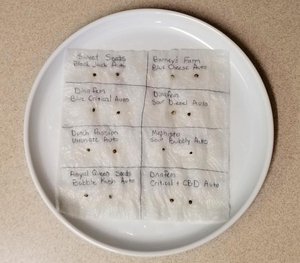 Sweet Seeds
Black Jack Auto
Barney's Farm
Blue Cheese Auto
Dinafem
Blue Critical Auto
Dinafem
Sour Diesel Auto
Dutch Passion
Auto
Mephisto
Sour Bubbly Auto
Royal Queen Seeds
Bubble Kush Auto
Dinafem
Critical + CBD Auto